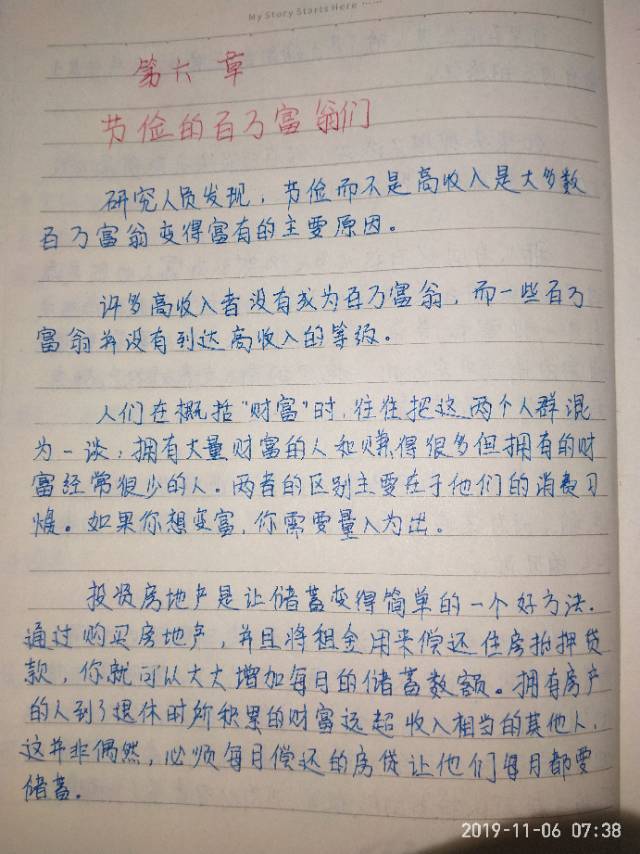 My Story Starts Here ······
第六章
节俭的百万富翁们
研究人员发现，节俭而不是高收入是大多数
百万富翁变得富有的主要原因。
许多高收入者没有成为百万富翁，而一些百万
富翁并没有到达高收入的等级。
人们在概括“财富”时，往往把这两个人群混
为一谈，拥有大量财富的人和赚得很多但拥有的财
富经常很少的人。两者的区别主要在于他们的消费习
惯。如果你想变富，你需要量入为出。
投资房地产是让储蓄变得简单的一个好方法.
通过购买房地产，并且将租金用来偿还住房抵押贷
款，你就可以大大增加每月的储蓄数额。拥有房产
的人到了退休时所积累的财富远超收入相当的其他人.
这并非偶然，必须每月偿还的房贷让他们每月都要
储蓄。
2019-11-06 07:38